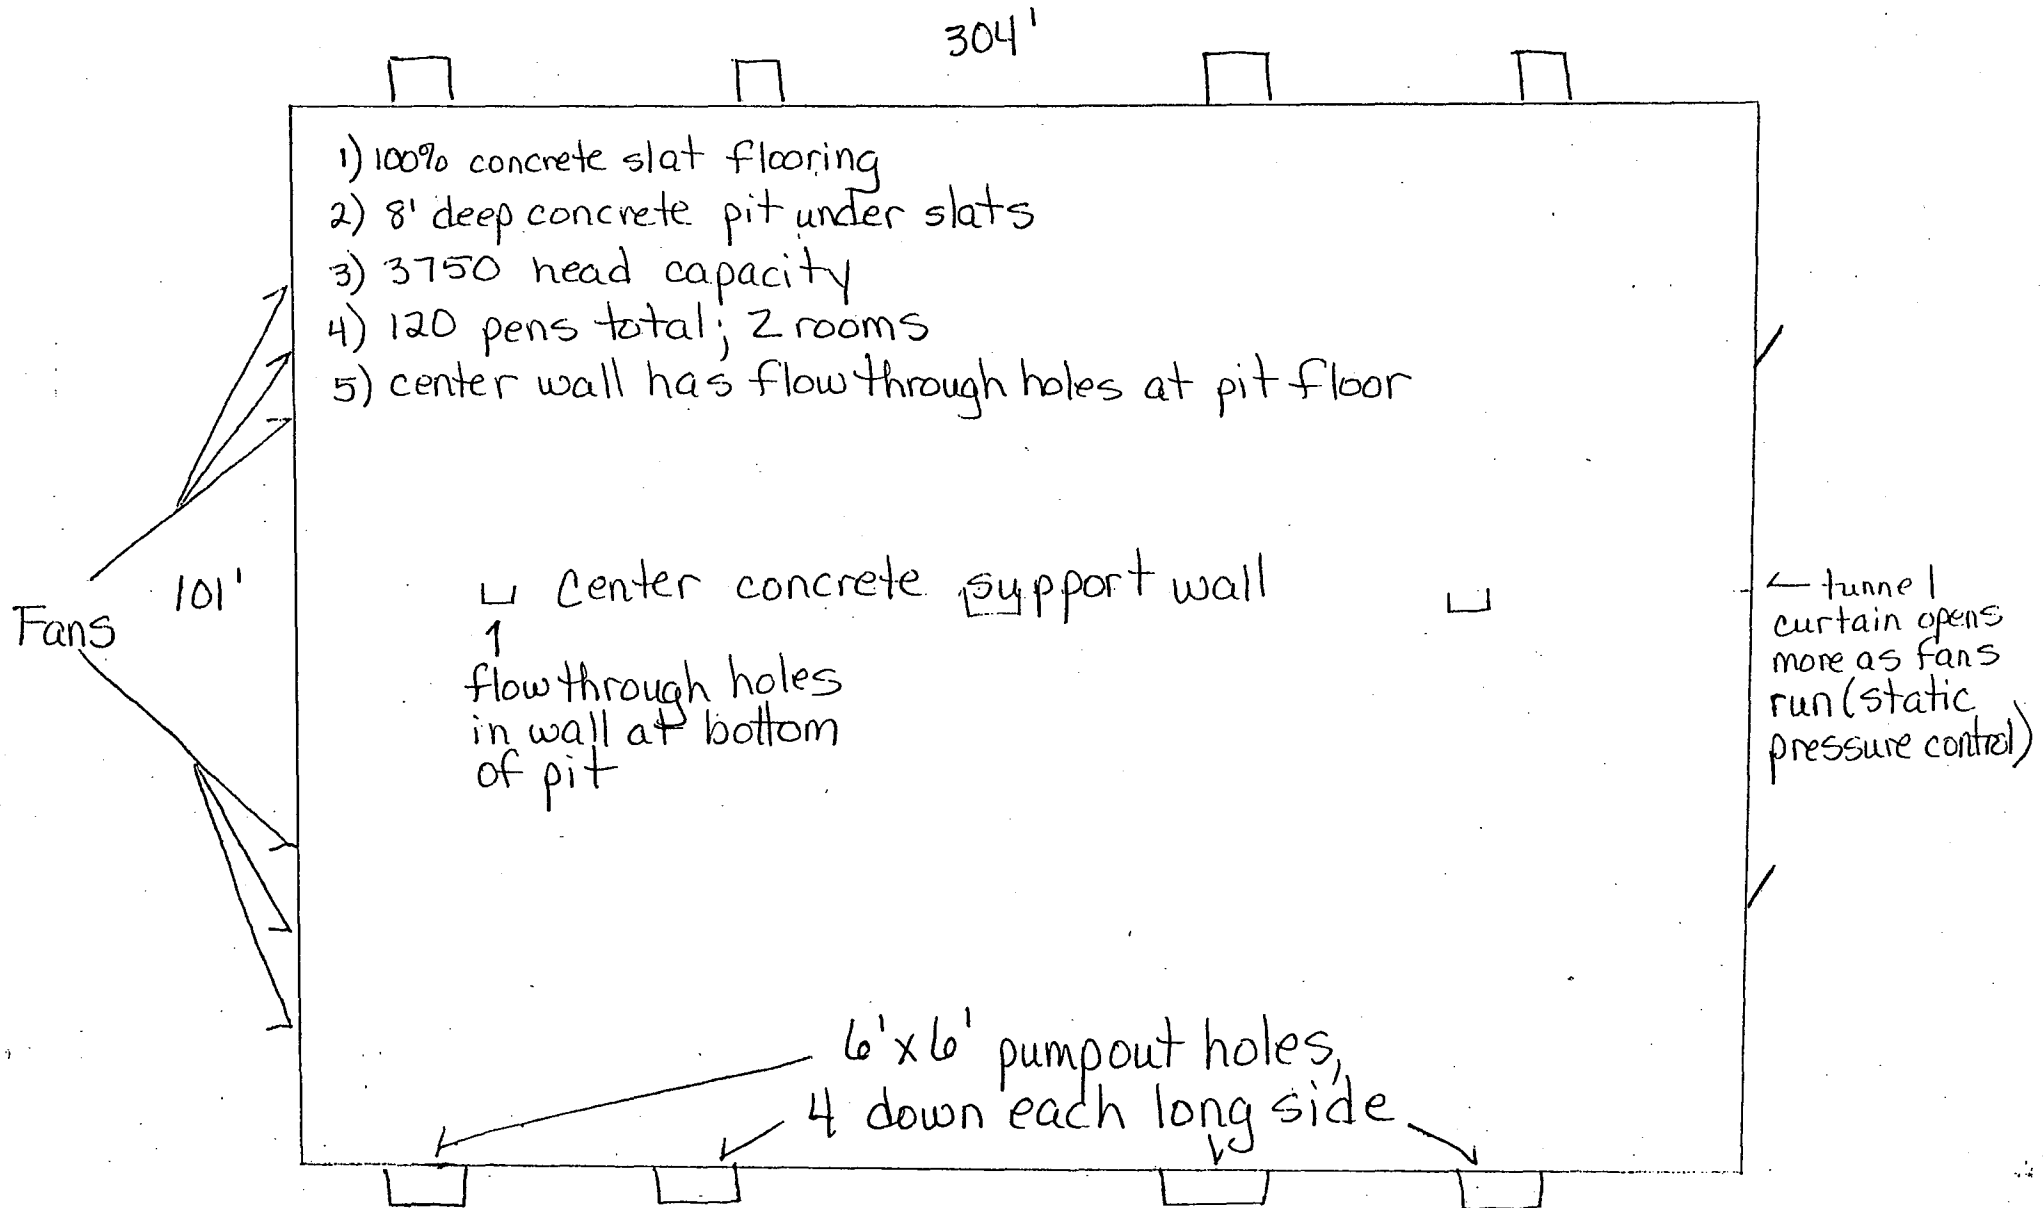 304'
1) 100% concrete slat flooring
2) 8' deep concrete pit under slats
3) 3750 head capacity
4) 120 pens total; 2 rooms
5) center wall has flow through holes at pit floor
101'
Fans
Center concrete support wall
flow through holes
in wall at bottom
of pit
← tunnel
curtain opens
more as fans
run (static
pressure control)
6'x6' pumpout holes,
4 down each long side